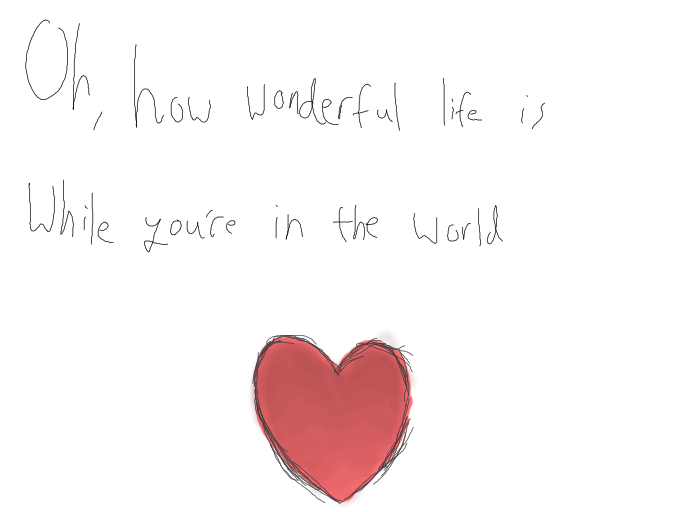 Oh, how wonderful life is
While you're in the world